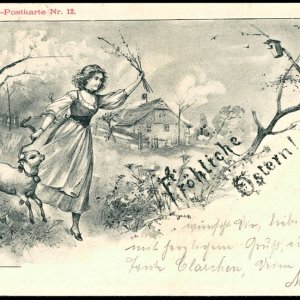 -Postkarte Nr. 12.
Fröhliche
Ostern!
wünscht Dir, liebe
mit herzlichem Gruß,
Clärchen,